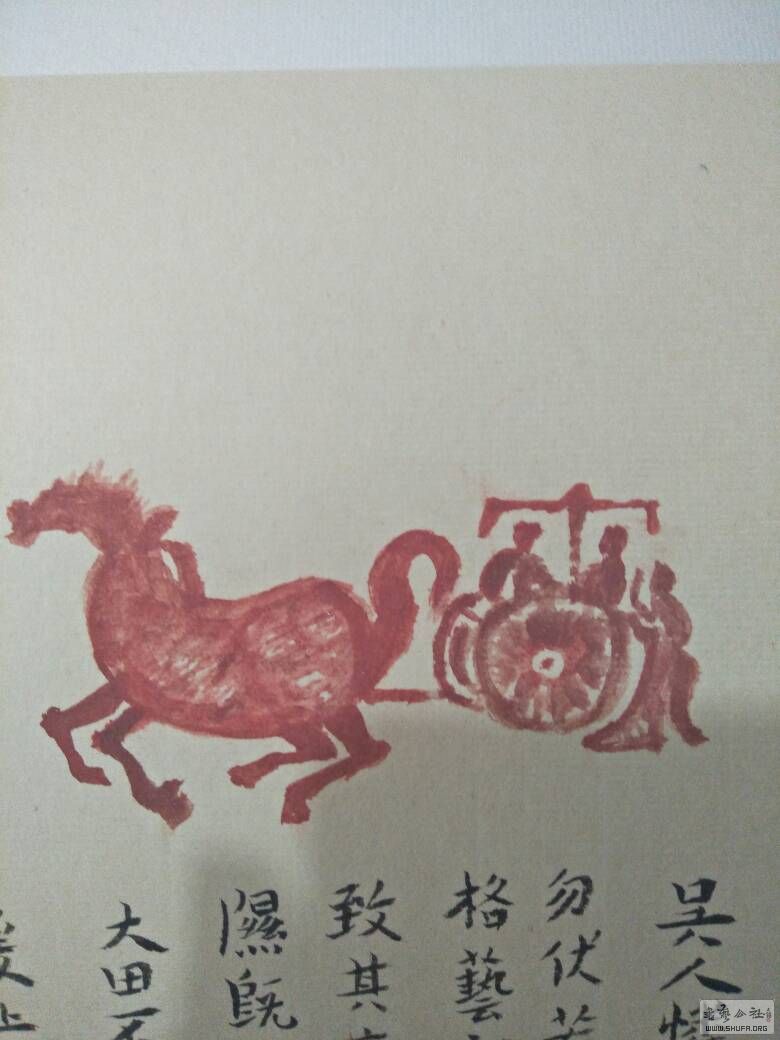 吴人
勿伏
格藝
致其
隰既
大田不
書藝公社
WWW.SHUFA.ORG